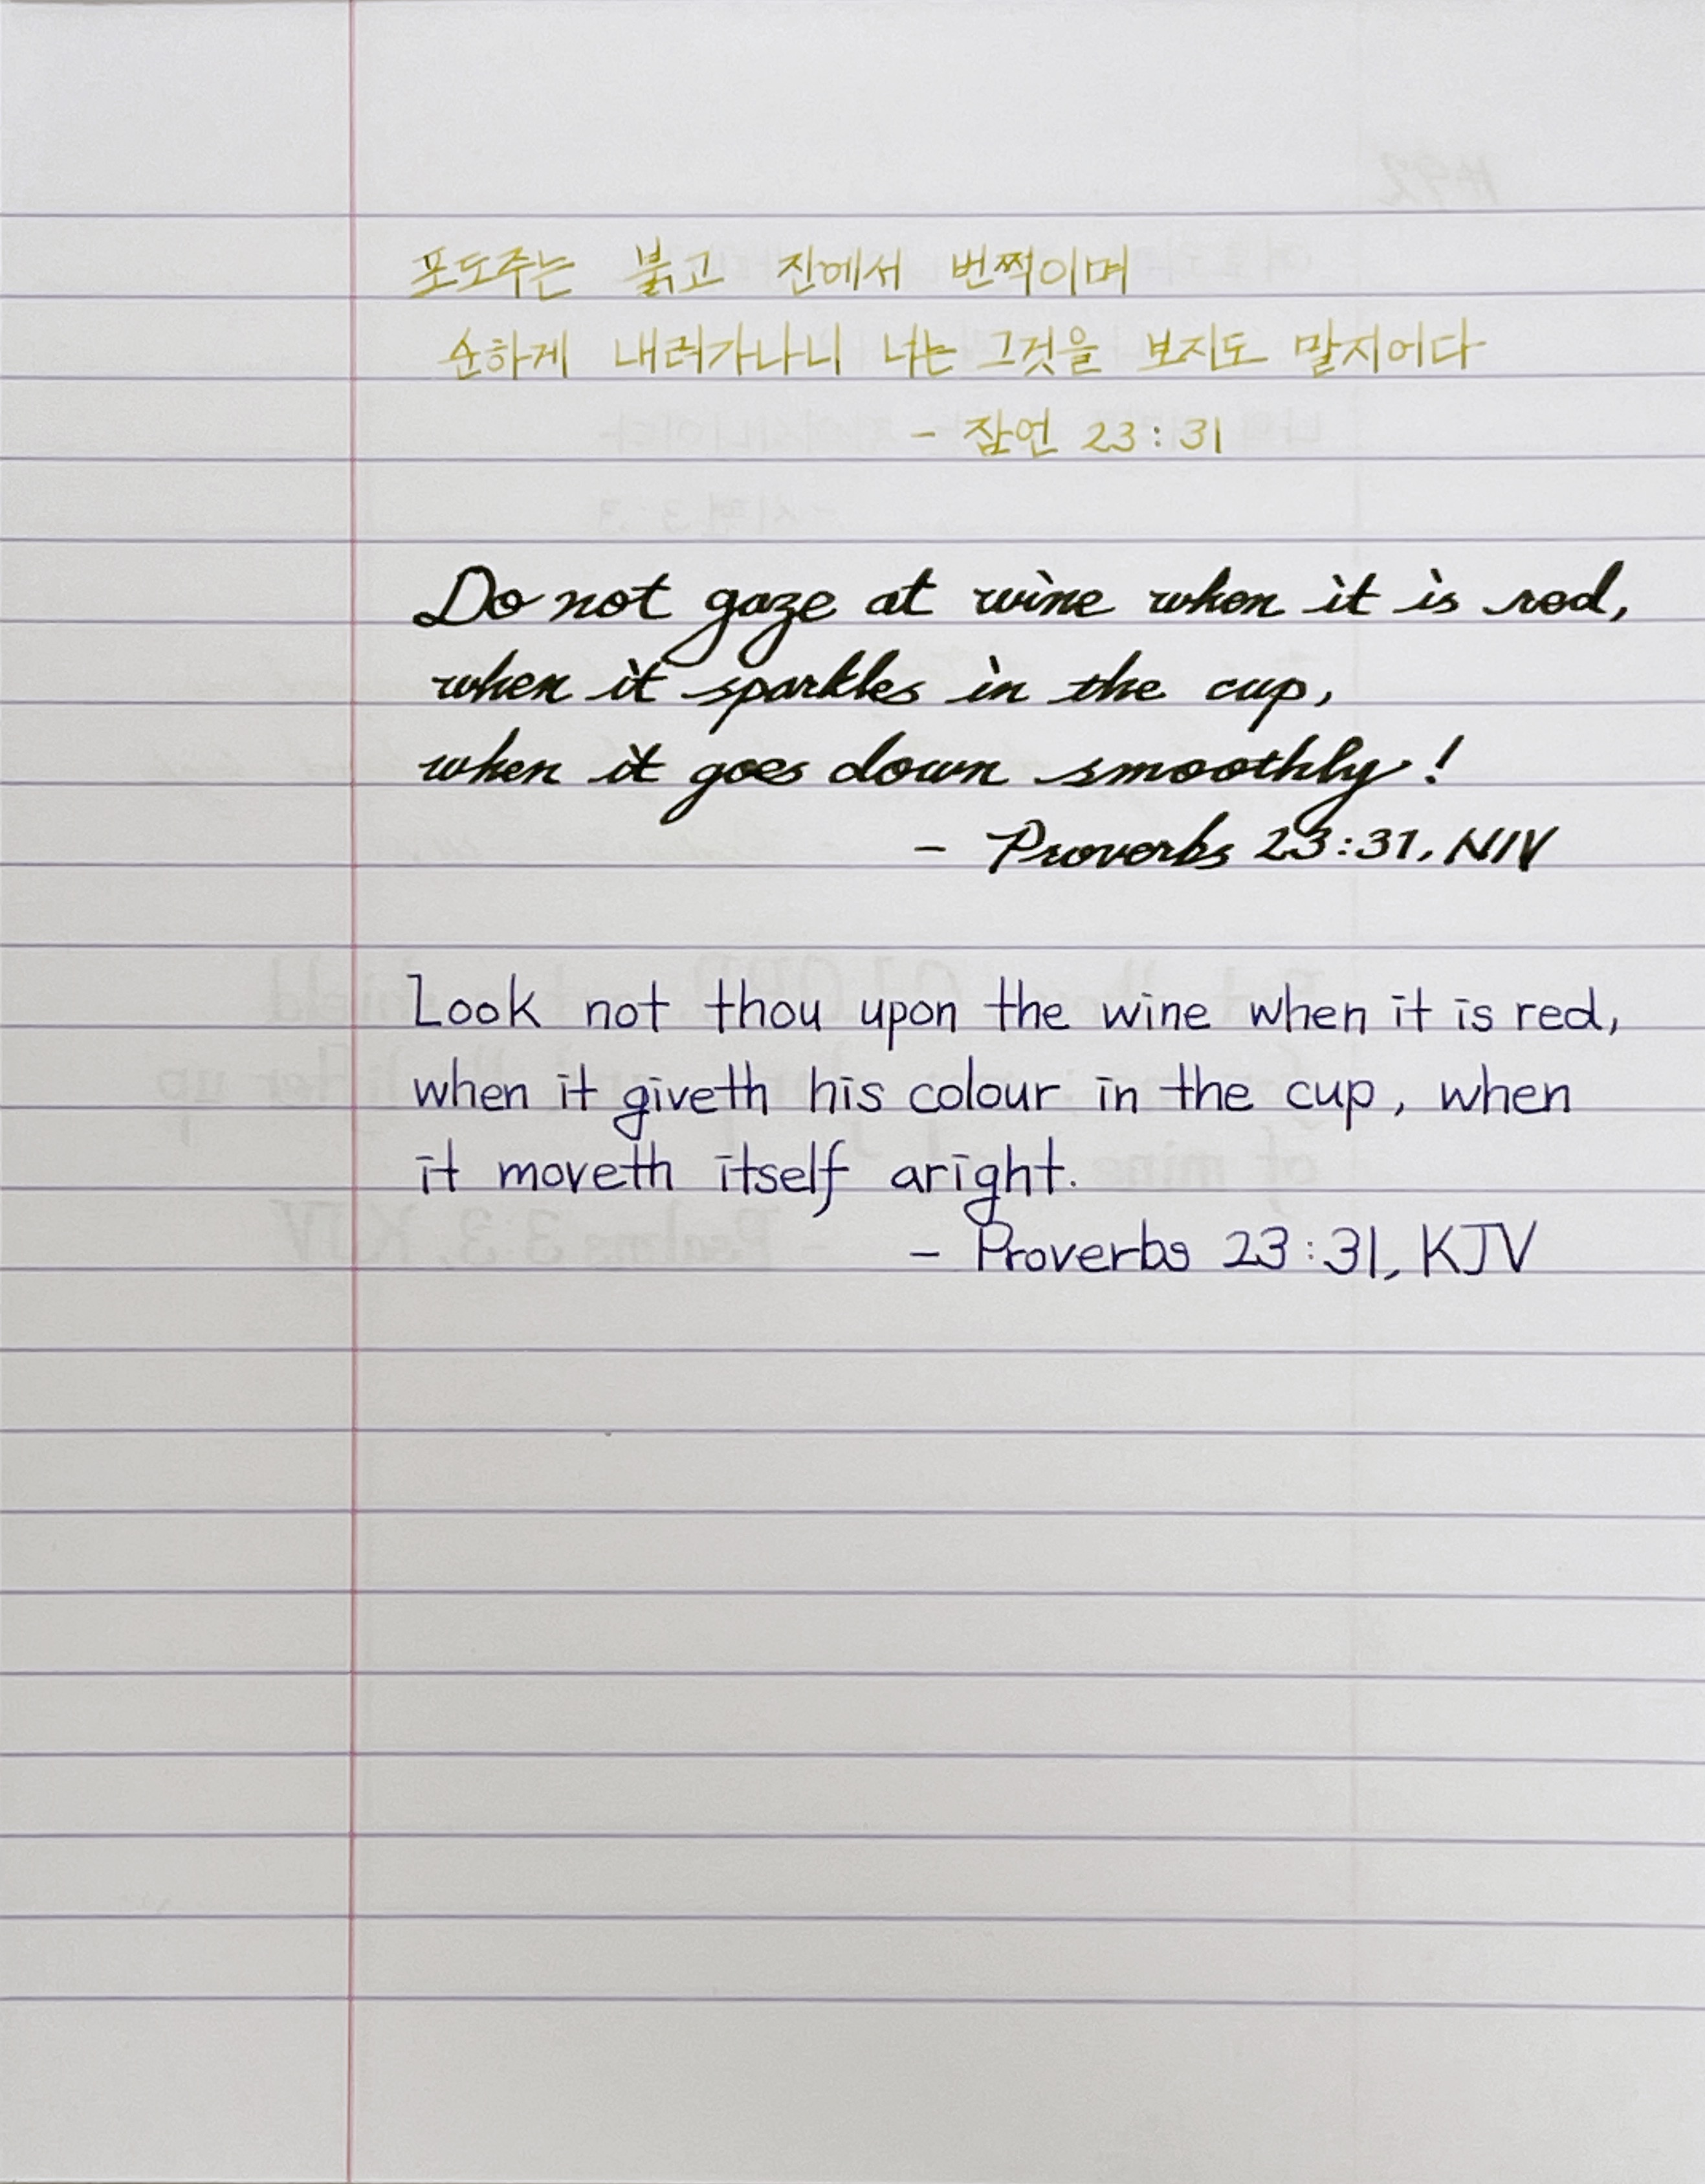 포도주는 붉고 잔에서 번쩍이며
순하게 내려가나니 너는 그것을 보지도 말지어다
- 잠언 23:31
Do not gaze at wine when it is red,
when it sparkles in the cup,
when it goes down smoothly!
- Proverbs 23:31, NIV
Look not thou upon the wine when it is red,
when it giveth his colour in the cup, when
it moveth itself aright.
- Proverbs 23:31, KJV